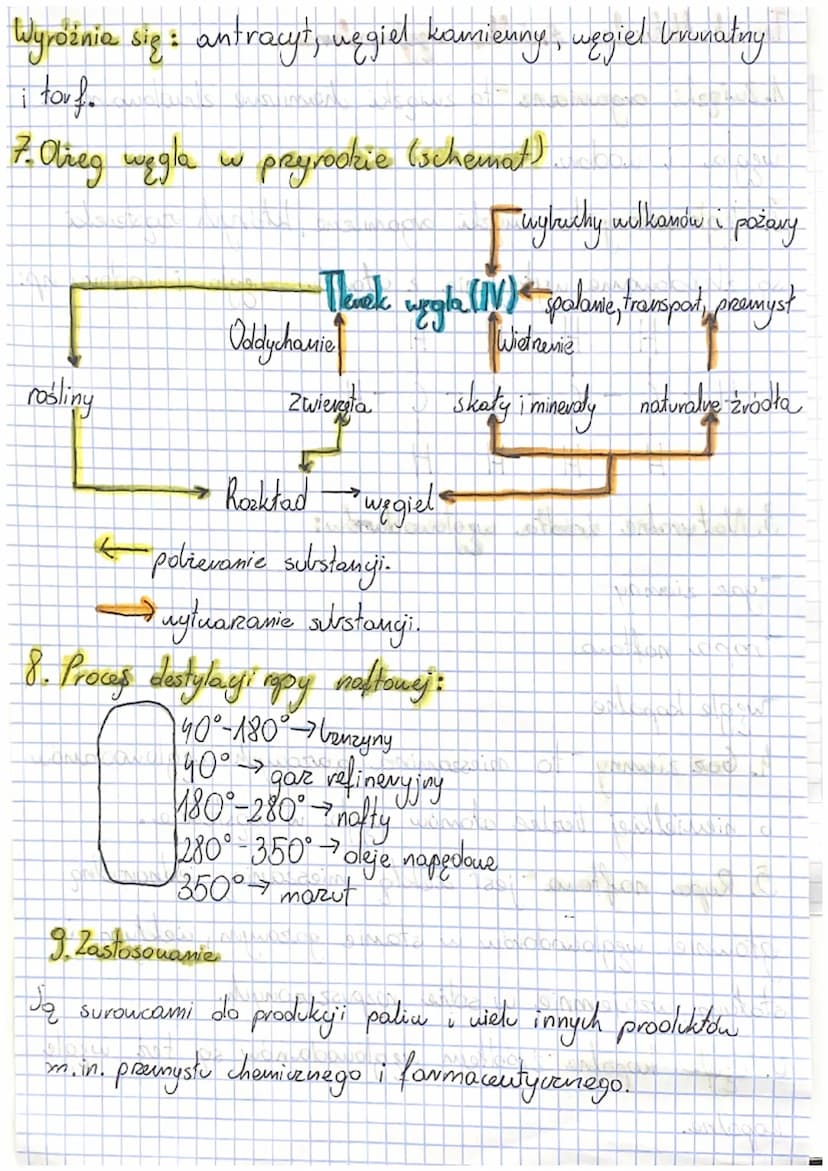 Wyróżnia się: antracyt, węgiel kamienny, węgiel brunatny
i torf.
7. Obieg węgla w przyrodzie (schemat)
wybuchy wulkanów i pożary
Tlenek węgla (IV)
spalanie, transport, przemysł
Oddychanie
Wietrzenie
rośliny
zwierzęta
skały i minerały
naturalne źródła
Rozkład → węgiel
pobieranie substancji.
wytwarzanie substancji.
8. Proces destylacji ropy naftowej:
40°-180° → benzyny
40° → gaz rafineryjny
180°-280° → nafty
280°-350° → oleje napędowe
350° → mazut
9. Zastosowanie
Są surowcami do produkcji paliw i wielu innych produktów
m.in. przemysłu chemicznego i farmaceutycznego.